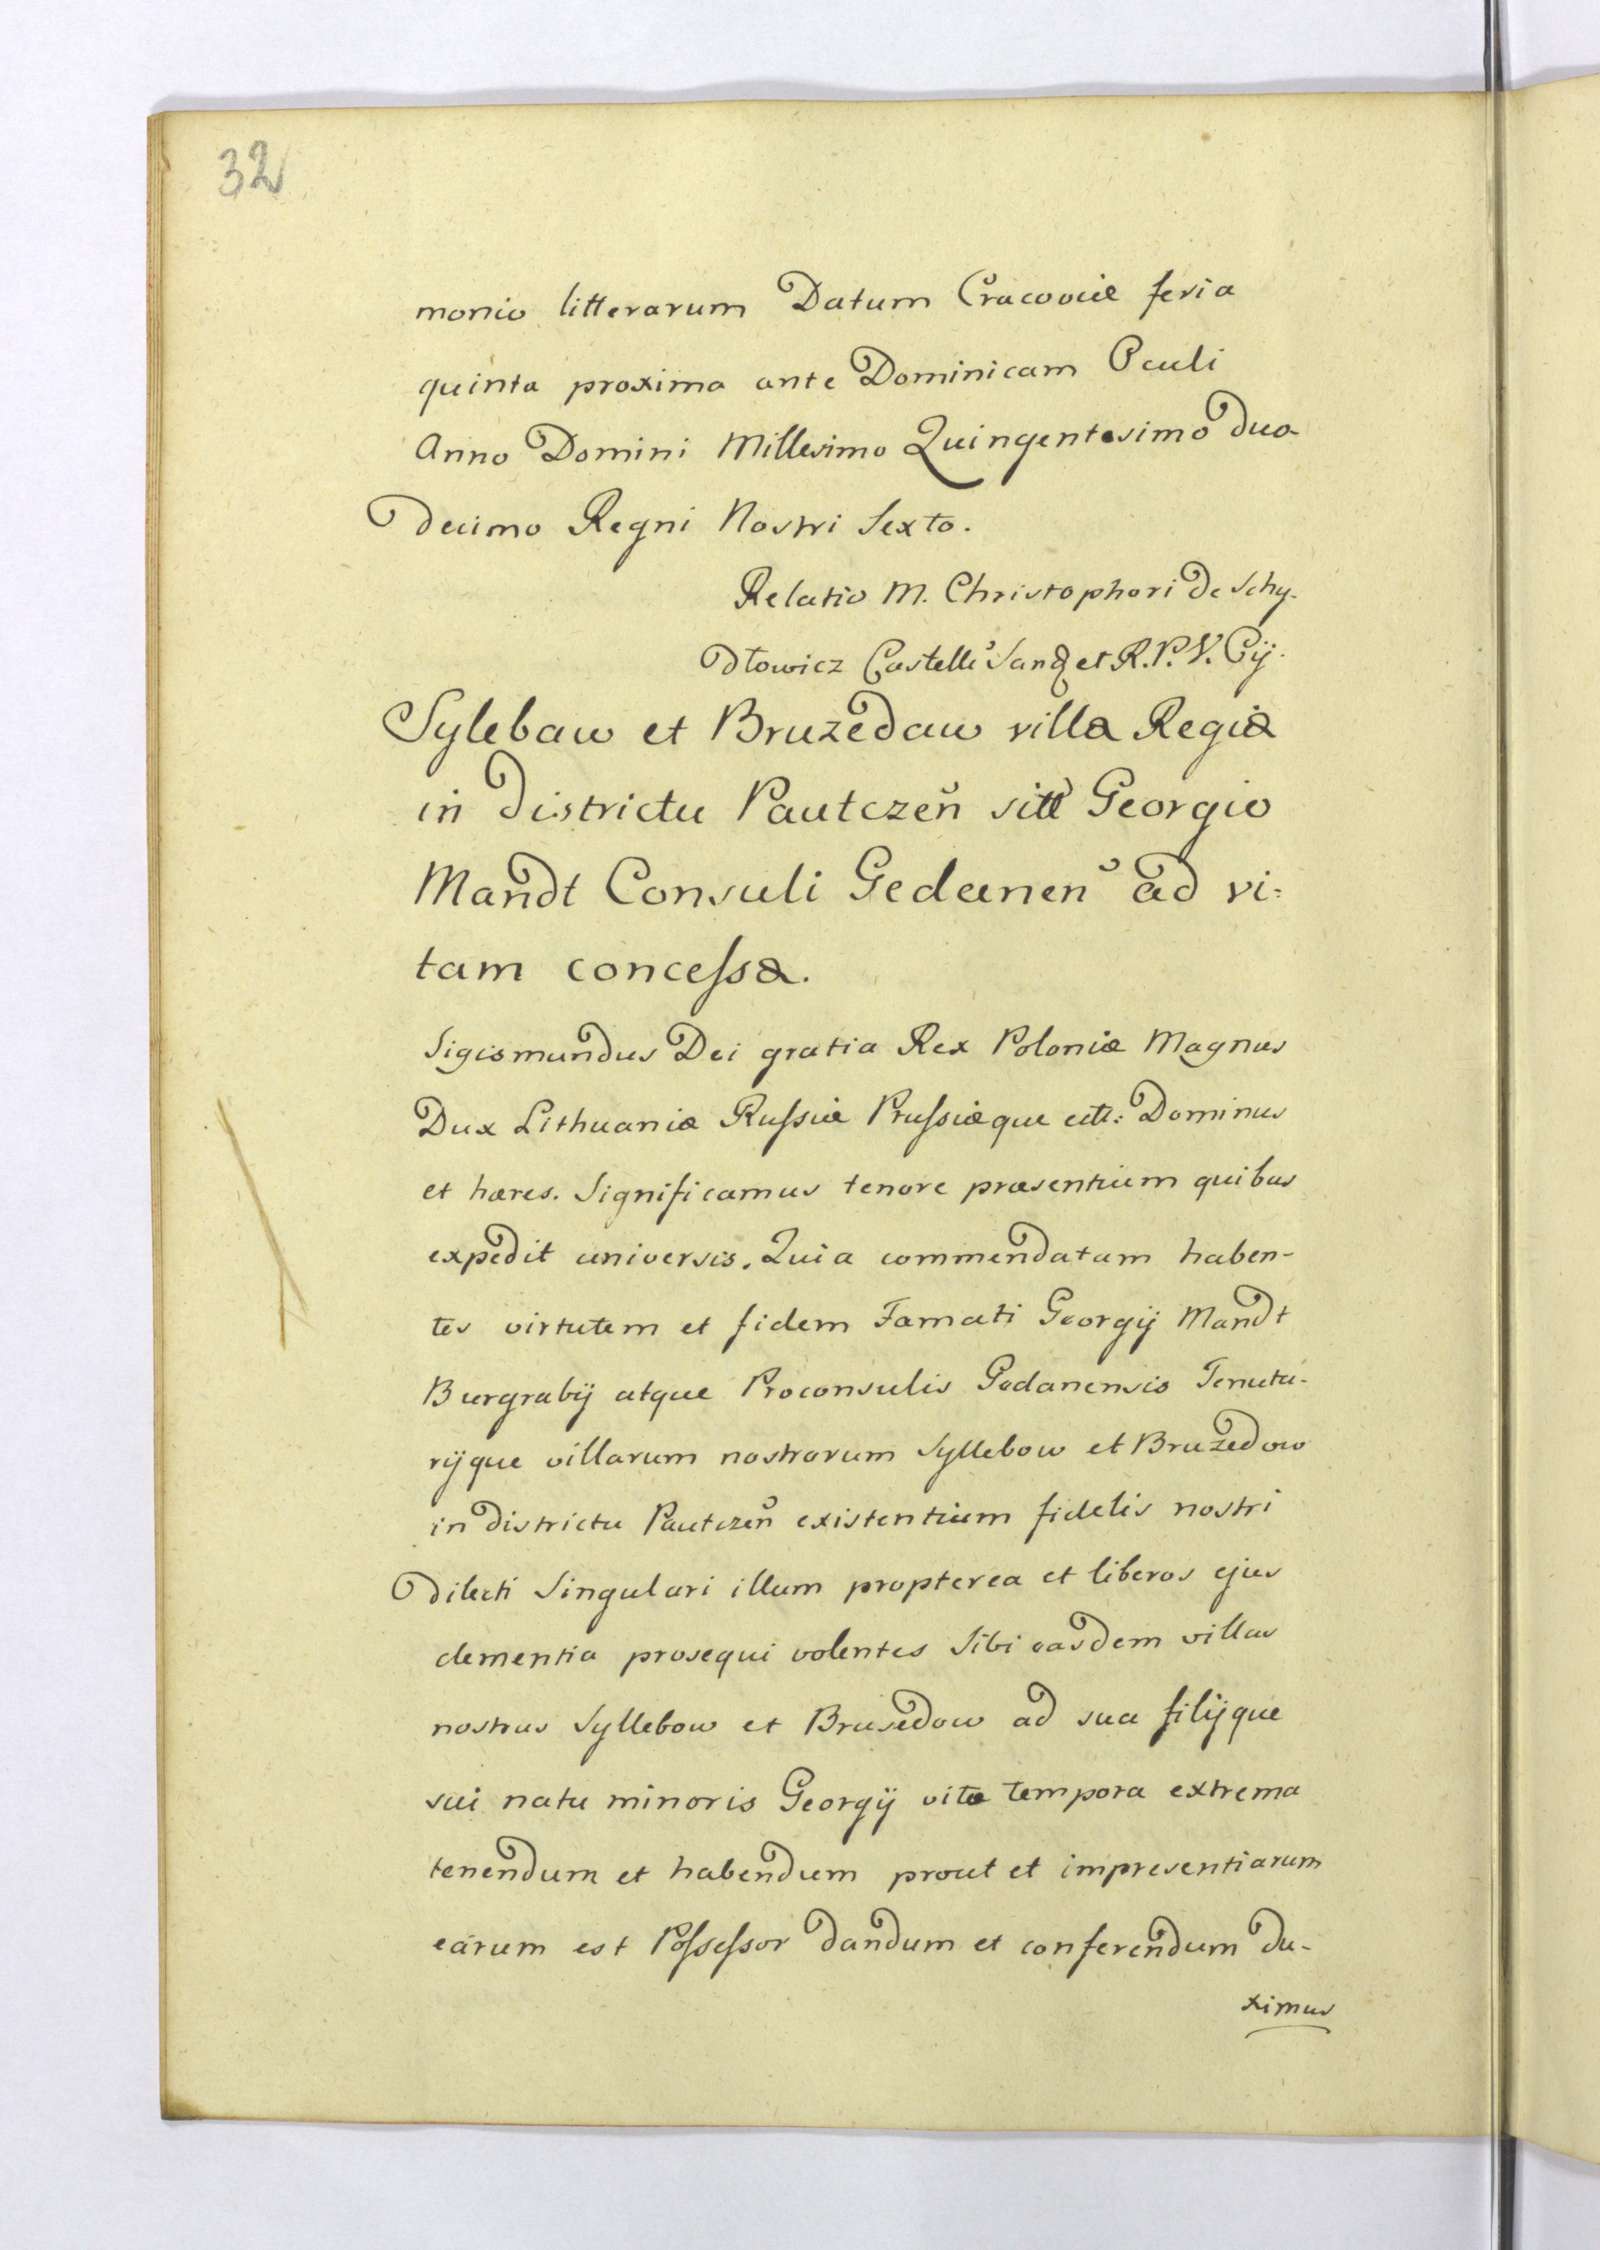 32
monio litterarum Datum Cracoviæ feria
quinta proxima ante Dominicam Oculi
Anno Domini Millesimo Quingentesimo duo-
decimo Regni Nostri Sexto.
Relatio M. Christophori de Schy-
dłowicz Castell Sand et R. P. V. Cij.
Sylebaw et Bruzedaw villæ Regiæ
in districtu Pautczen sitæ Georgio
Mandt Consuli Gedanen ad vi=
tam concessæ.
Sigismundus Dei gratia Rex Poloniæ Magnus
Dux Lithuaniæ Russiæ Prussiæque ett: Dominus
et hæres. Significamus tenore præsentium quibus
expedit universis. Quia commendatam haben-
tes virtutem et fidem Famati Georgij Mandt
Burgrabij atque Proconsulis Gedanensis Tenuta-
rijque villarum nostrarum Syllebow et Bruzedow
in districtu Pautczen existentium fidelis nostri
dilecti Singulari illum propterea et liberos ejus
clementia prosequi volentes Sibi easdem villas
nostras Syllebow et Brusedow ad sua filijque
sui natu minoris Georgij vitæ tempora extrema
tenendum et habendum prout et impresentiarum
earum est Possessor dandum et conferendum du-
ximus